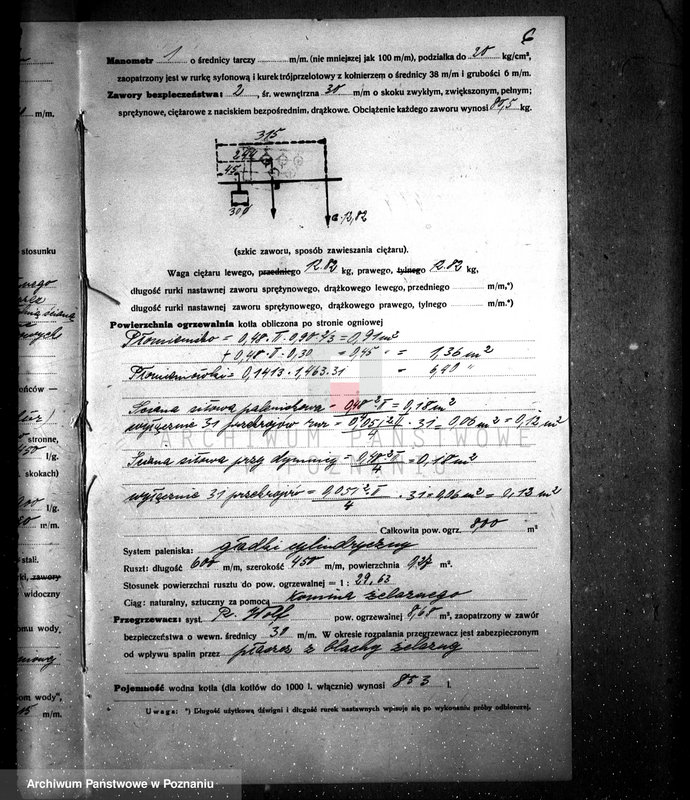 6
Manometr 1 o średnicy tarczy m/m. (nie mniejszej jak 100 m/m), podziałka do 20 kg/cm²,
zaopatrzony jest w rurkę syfonową i kurek trójprzelotowy z kołnierzem o średnicy 38 m/m i grubości 6 m/m.
Zawory bezpieczeństwa: 2, śr. wewnętrzna 30 m/m o skoku zwykłym, zwiększonym, pełnym;
sprężynowe, ciężarowe z naciskiem bezpośrednim, drążkowe. Obciążenie każdego zaworu wynosi 87,5 kg.
315
244
45
300
G=12,82
(szkic zaworu, sposób zawieszania ciężaru).
Waga ciężaru lewego, przedniego 12.82 kg, prawego, tylnego 12.82 kg,
długość rurki nastawnej zaworu sprężynowego, drążkowego lewego, przedniego m/m,*)
długość rurki nastawnej zaworu sprężynowego, drążkowego prawego, tylnego m/m.*)
Powierzchnia ogrzewalna kotła obliczona po stronie ogniowej
= 0,48 · π · 0,90 · 2/3 = 0,91 m²
+ 0,48 · π · 0,30 = 0,45 " = 1,36 m²
Płomieniówki = 0,1413 · 1,463 · 31 = 6,40 "
Ściana sitowa paleniskowa = 0,48² · π / 4 = 0,18 m²
wyłączenie 31 przekrojów rur = 0,051² · π / 4 · 31 = 0,06 m² = 0,12 m²
Ściana sitowa przy dymnicy = 0,48² · π / 4 = 0,18 m²
wyłączenie 31 przekrojów = 0,051² · π / 4 · 31 = 0,06 m² = 0,12 m²
Całkowita pow. ogrz. 8,00 m²
System paleniska: gładki cylindryczny
Ruszt: długość 600 m/m, szerokość 450 m/m, powierzchnia 0,27 m².
Stosunek powierzchni rusztu do pow. ogrzewalnej = 1 : 29,63
Ciąg: naturalny, sztuczny za pomocą komina żelaznego
Przegrzewacz: syst. R. Wolf pow. ogrzewalnej 8,60 m², zaopatrzony w zawór
bezpieczeństwa o wewn. średnicy 30 m/m. W okresie rozpalania przegrzewacz jest zabezpieczonym
od wpływu spalin przez płaszcz z blachy
Pojemność wodna kotła (dla kotłów do 1000 l. włącznie) wynosi 853 l.
Uwaga: *) Długość użytkową dźwigni i długość rurek nastawnych wpisuje się po wykonaniu próby odbiorczej.
m/m.
stosunku
ońców —
stronne,
l/g.
skokach)
l/g.
m/m.
zawory
widoczny
omu wody
om wody",
m/m.
ARCHIWUM PAŃSTWOWE
W POZNANIU
Archiwum Państwowe w Poznaniu